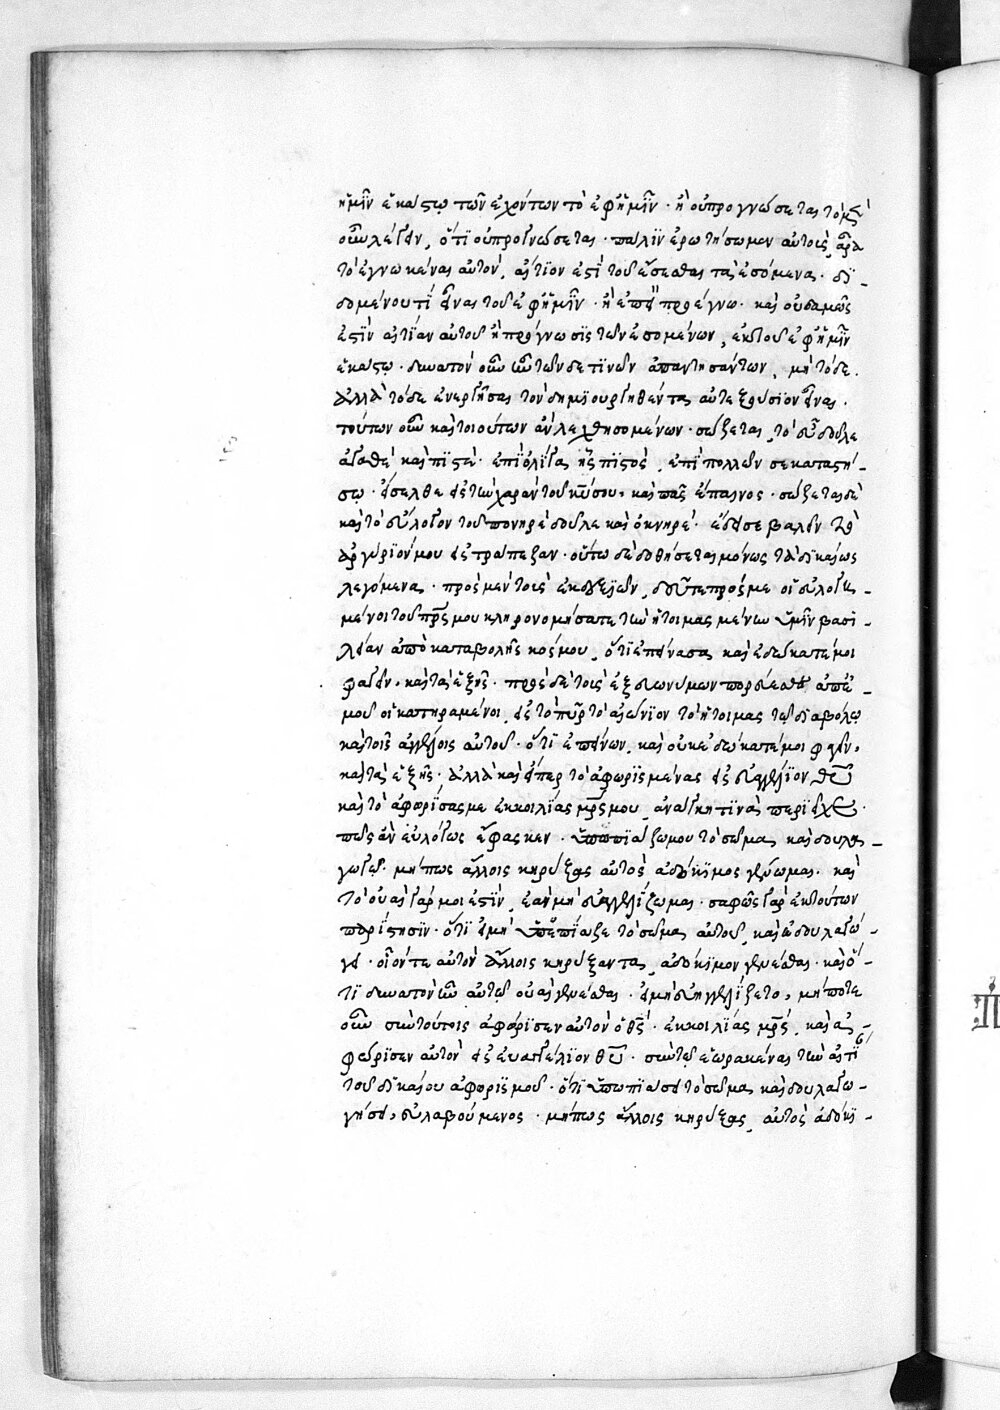 ἡμῖν ἑκάστω τῶν ἐχόντων τὸ ἐφ' ἡμῖν · ἢ οὐ προγνώσεται ὁ θς
οὐν λέγειν, ὅτι οὐ προγνώσεται · πάλιν ἐρωτήσωμεν αὐτοὺς, ἆρα
τὸ ἐγνωκέναι αὐτὸν, αἴτιον ἐστὶ τοῦ ἔσεσθαι τὰ ἐσόμενα · δι
δομένου τί εἶναι τοῦ ἐφ' ἡμῖν · ἢ ἐπεὶ προέγνω · καὶ οὐδαμῶς
ἐστὶν αἰτίαν αὐτοῦ ἡ πρόγνωσις τῶν ἐσομένων, ἐκ τοῦ ἐφ' ἡμῖν
ἑκάστω · δυνατὸν οὖν τῶνδέ τινων ἀπαντησάντων, μὴ τόδε ·
ἀλλὰ τόδε ἐνεργῆσαι τὸν δημιουργηθέντα αὐτεξούσιον εἶναι ·
τούτων οὖν καὶ τοιούτων ἂν λεχθησομένων · σώζεται, τὸ εὖ δοῦλε
ἀγαθὲ καὶ πιστὲ · ἐπὶ ὀλίγα ἦς πιστὸς, ἐπὶ πολλῶν σε καταστή-
σω · εἴσελθε εἰς τὴν χαρὰν τοῦ κυ σου · καὶ πᾶς ἔπαινος · σώζεται δὲ
καὶ τὸ εὔλογον τοῦ πονηρὲ δοῦλε καὶ ὀκνηρὲ · ἔδει σε βαλεῖν τὸ
ἀργύριόν μου εἰς τράπεζαν · οὕτω δὲ δοθήσεται μόνως τὰ δικαίως
λεγόμενα · πρὸς μὲν τοὺς ἐκ δεξιῶν, δεῦτε πρός με οἱ εὐλογη-
μένοι τοῦ πρς μου κληρονομήσατε τὴν ἡτοιμασμένην ὑμῖν βασι-
λείαν ἀπὸ καταβολῆς κόσμου, ὅτι ἐπείνασα καὶ ἐδώκατέ μοι
φαγεῖν · καὶ τὰ ἑξῆς · πρὸς δὲ τοὺς ἐξ εὐωνύμων πορεύεσθε ἀπ' ἐ-
μοῦ οἱ κατηραμένοι, εἰς τὸ πῦρ τὸ αἰώνιον τὸ ἡτοιμασ τῶ διαβόλω
καὶ τοῖς ἀγγέλοις αὐτοῦ · ὅτι ἐπείνων, καὶ οὐκ ἐδώκατέ μοι φαγεῖν ·
καὶ τὰ ἑξῆς · ἀλλὰ καὶ εἴπερ τὸ ἀφωρισμένας εἰς εὐαγγέλιον θυ
καὶ τὸ ἀφορίσας με ἐκ κοιλίας μρς μου, ἀνάγκη τινὰ περιεῖχε ·
πῶς ἂν εὐλόγως ἔφασκεν · ὑπωπιάζω μου τὸ σῶμα, καὶ δουλα-
γωγῶ · μήπως ἄλλοις κηρύξας αὐτὸς ἀδόκιμος γένωμαι · καὶ
τὸ οὐαὶ γάρ μοι ἐστὶν, ἐὰν μὴ εὐαγγελίζωμαι · σαφῶς γὰρ ἐκ τούτων
παρίστησιν · ὅτι εἰ μὴ ὑπωπίαζε τὸ σῶμα αὐτοῦ, καὶ ἐδουλαγώ-
γει · οἷόν τε αὐτὸν ἄλλοις κηρύξαντα, ἀδόκιμον γενέσθαι · καὶ ὅ-
τι δυνατὸν ἦν αὐτῶ οὐαὶ γενέσθαι · εἰ μὴ εὐηγγελίζετο, μήποτε
οὖν σὺν τούτοις ἀφώρισεν αὐτὸν ὁ θς · ἐκ κοιλίας μρς, καὶ ἀ-
φώρισεν αὐτὸν εἰς εὐαγγέλιον θυ · σὺν τῶ ἑωρακέναι τὴν αἰτί
τοῦ δικαίου ἀφορισμοῦ · ὅτι ὑπωπιάσει τὸ σῶμα, καὶ δουλαγω-
γήσει, εὐλαβούμενος · μήπως ἄλλοις κηρύξας, αὐτὸς ἀδόκι-